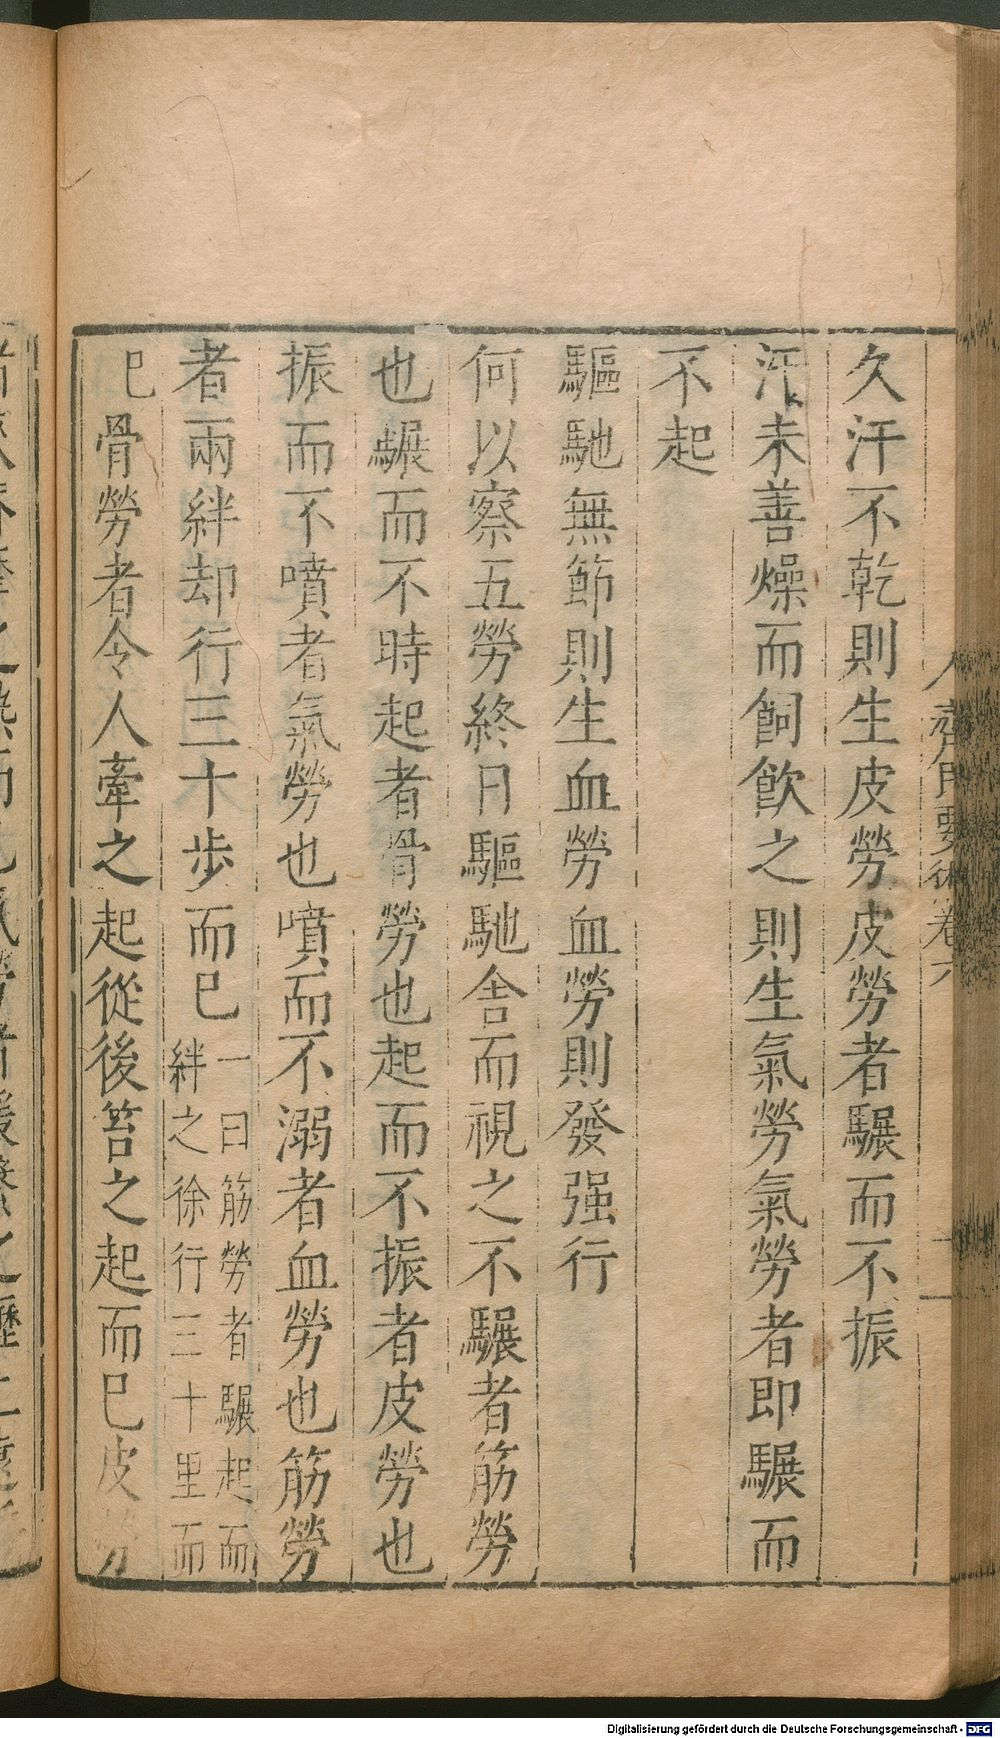 久汗不乾則生皮勞皮勞者驏而不振
汗未善燥而飼飲之則生氣勞氣勞者即驏而
不起
驅馳無節則生血勞血勞則發强行
何以察五勞終日驅馳舍而視之不驏者筋勞
也驏而不時起者骨勞也起而不振者皮勞也
振而不噴者氣勞也噴而不溺者血勞也筋勞
者兩絆却行三十步而巳
一曰筋勞者驏起而
絆之徐行三十里而
巳骨勞者令人牽之起從後笞之起而巳皮勞
齊民要術卷六
Digitalisierung gefördert durch die Deutsche Forschungsgemeinschaft - DFG